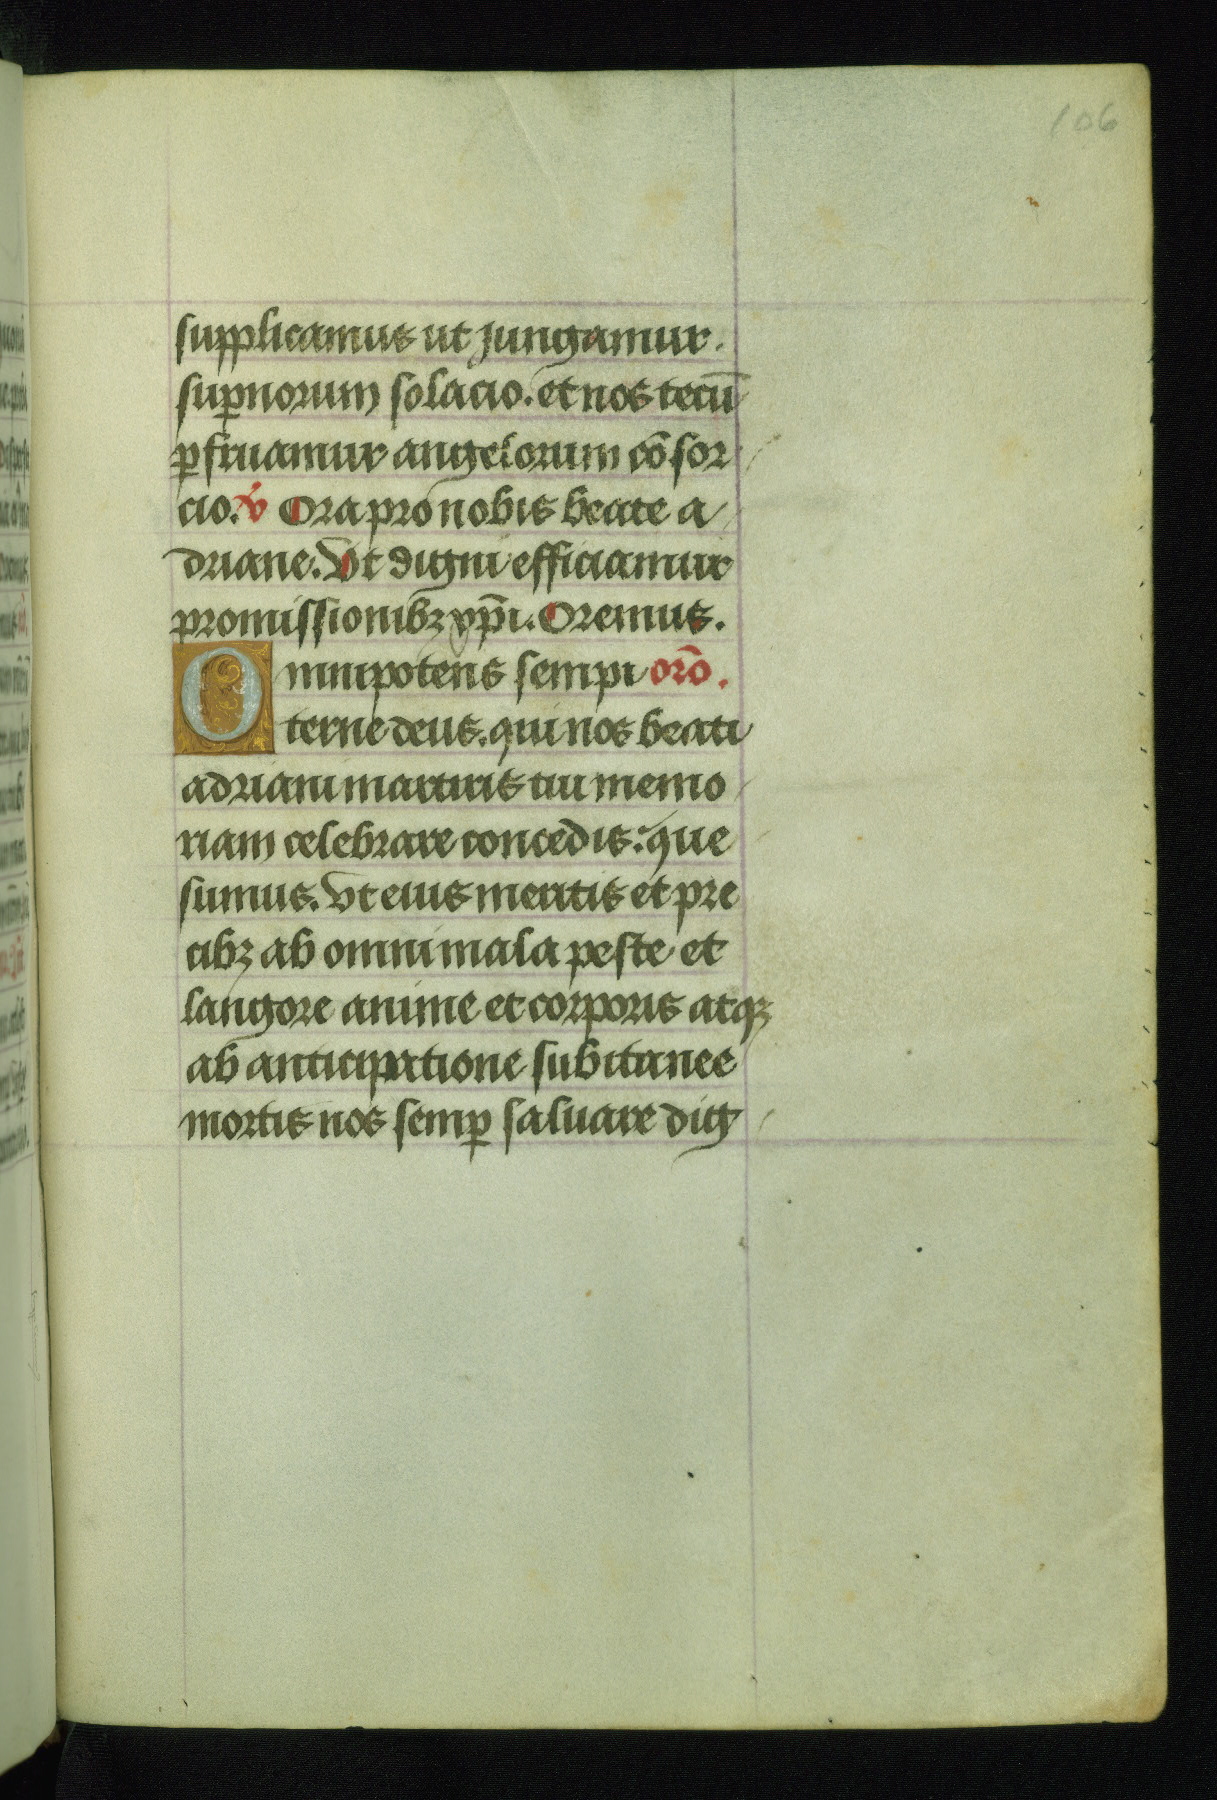 106
supplicamus ut jungamur.
suꝑnorum solacio. et nos tecū
ꝑfruamur angelorum cōsor
cio. ℣ Ora pro nobis beate a
driane. Vt digni efficiamur
promissionibꝫ xp̄i. Oremus.
Omnipotens sempi orō.
terne deus. qui nos beati
adriani martiris tui memo
riam celebrare concedis: que
sumus. Vt eius meritis et pre
cibꝫ ab omni mala peste et
langore anime et corporis atqꝫ
ab anticipatione subitanee
mortis nos semꝑ saluare dig